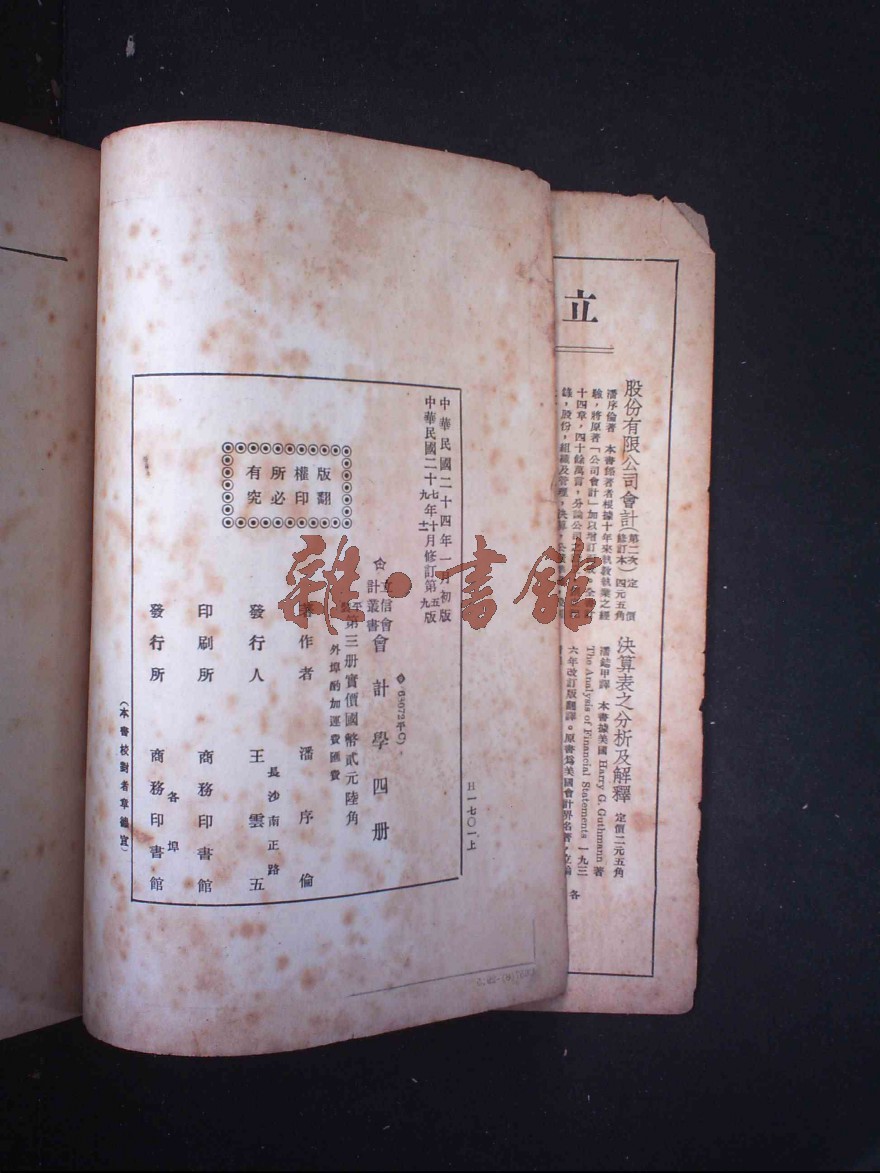 立
股份有限公司會計(第二次修訂本) 定價四元五角
潘序倫著 本書經著者根據十年來執教執業之經
驗，將原著「公司會計」加以增訂
十四章，四十餘萬言，分論公司
決算表之分析及解釋 定價二元五角
潘鋕甲譯 本書據美國 Harry G. Guthmann 著
The Analysis of Financial Statements 一九三
六年改訂版翻譯。原書爲美國會計界名著，立論
各
中華民國二十四年一月初版
中華民國二十七年十月修訂第五版
九 十二 九
版權所有
翻印必究
立信會計叢書
會計學四册
(68072平C)
第三册實價國幣貳元陸角
外埠酌加運費匯費
著作者 潘序倫
發行人 王雲五
長沙南正路
印刷所 商務印書館
各埠
發行所 商務印書館
(本書校對者章德宜)
H一七〇一上
雜·書館